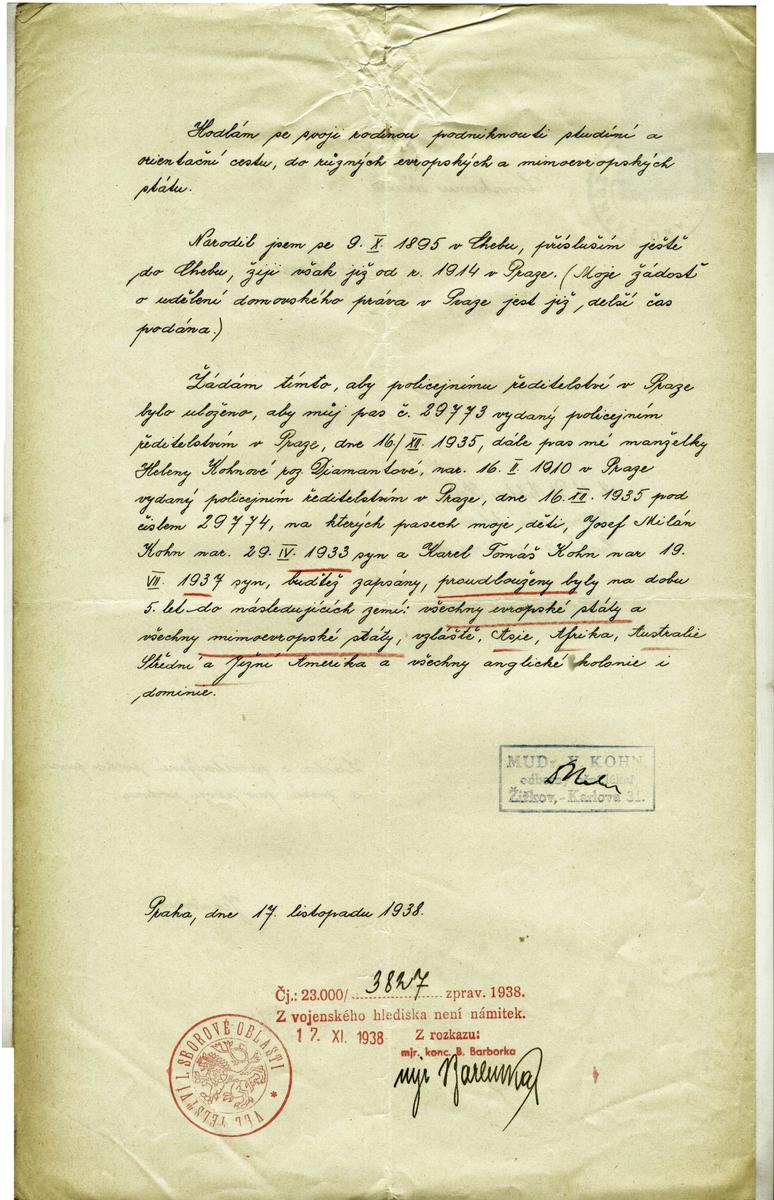 Hodlám se svoji rodinou podniknouti studíní a
orientační cestu, do různých evropských a mimoevropských
státu.
Narodil jsem se 9. X. 1895 v Chebu, příslušim ještě
do Chebu, žiji však již od r. 1914 v Praze. (Moje žádosť
o udělení domovského práva v Praze jest již, delší čas
podána.)
Žádám tímto, aby policejnímu ředitelství v Praze
bylo uloženo, aby můj pas č. 29773 vydaný policejním
ředitelstvím v Praze, dne 16/XII. 1935, dále pas mé manželky
Heleny Kohnové roz. Diamantové, nar. 16. II. 1910 v Praze
vydaný policejním ředitelstvím v Praze, dne 16. XII. 1935 pod
číslem 29774, na kterých pasech moje, děti, Josef Milán
Kohn nar. 29. IV. 1933 syn a Karel Tomáš Kohn nar 19.
VII. 1937 syn, buďtež zapsány, proudlouženy byly na dobu
5. let do následujících zemí: všechny evropské státy a
všechny mimoevropské státy, vzláště, Asie, Afrika, Australie
Střední a Jižní Amerika a všechny anglické kolonie i
dominie.
MUDr. KOHN
Žižkov, - Karlova 31.
Praha, dne 17. listopadu 1938.
Čj.: 23.000/ 3827 zprav. 1938.
Z vojenského hlediska není námitek.
17. XI. 1938 Z rozkazu:
mjr. konc. B. Barborka
mjr Barborka
VELITELSTVÍ I. SBOROVÉ OBLASTI